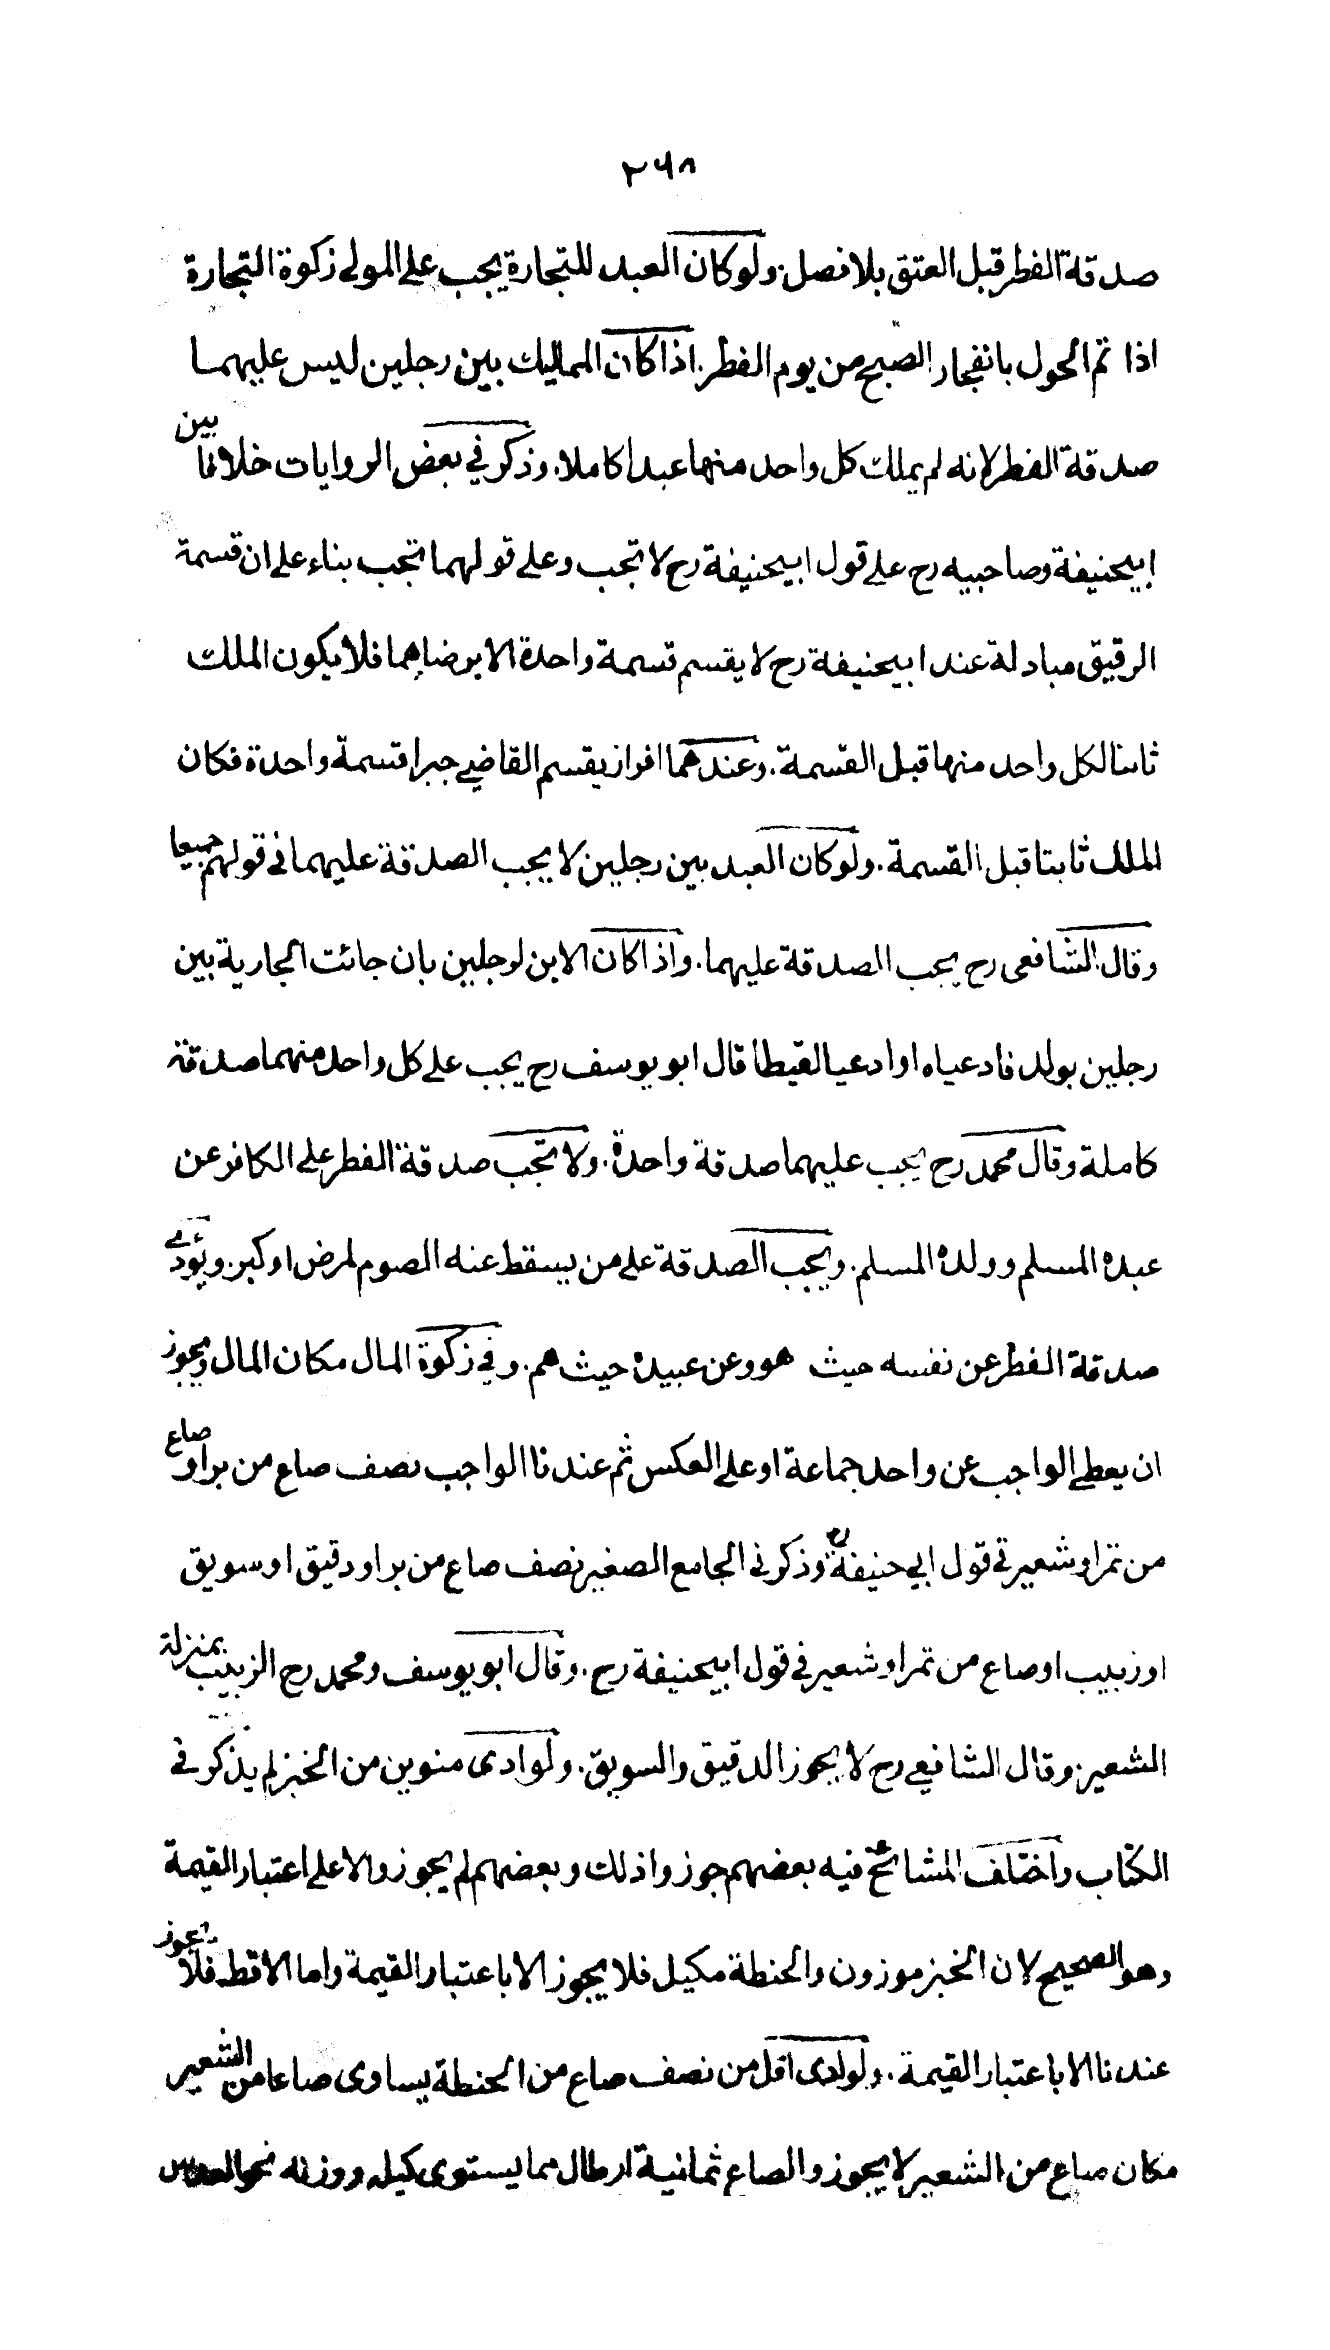 ٢٦٨
صدقة الفطر قبل العتق بلا فصل. ولو كان العبد للتجارة يجب على المولى زكوة التجارة
اذا تم الحول بانفجار الصبح من يوم الفطر. اذا كان المماليك بين رجلين ليس عليهما
صدقة الفطر لانه لم يملك كل واحد منهما عبدا كاملا. وذكر في بعض الروايات خلافا بين
ابيحنيفة وصاحبيه رح على قول ابيحنيفة رح لا تجب وعلى قولهما تجب بناء على ان قسمة
الرقيق مبادلة عند ابيحنيفة رح لا يقسم قسمة واحدة الا برضاهما فلا يكون الملك
ثابتا لكل واحد منهما قبل القسمة. وعندهما افراز يقسم القاضي جبرا قسمة واحدة فكان
الملك ثابتا قبل القسمة. ولو كان العبد بين رجلين لا يجب الصدقة عليهما في قولهم جميعا
وقال الشافعى رح يجب الصدقة عليهما. واذا كان الابن لرجلين بان جائت الجارية بين
رجلين بولد فادعياه او ادعيا لقيطا قال ابو يوسف رح يجب على كل واحد منهما صدقة
كاملة وقال محمد رح يجب عليهما صدقة واحدة. ولا تجب صدقة الفطر على الكافر عن
عبده المسلم وولده المسلم. ويجب الصدقة على من يسقط عنه الصوم لمرض او كبر. ويؤدي
صدقة الفطر عن نفسه حيث هو وعن عبيده حيث هم. وفي زكوة المال مكان المال ويجوز
ان يعطي الواجب عن واحد جماعة او على العكس ثم عندنا الواجب نصف صاع من بر او صاع
من تمر او شعير في قول ابي حنيفة رح وذكر في الجامع الصغير نصف صاع من بر او دقيق او سويق
او زبيب او صاع من تمر او شعير في قول ابيحنيفة رح. وقال ابو يوسف ومحمد رح الزبيب بمنزلة
الشعير. وقال الشافعي رح لا يجوز الدقيق والسويق. ولو ادى منوين من الخبز لم يذكر في
الكتاب واختلف المشائخ فيه بعضهم جوزوا ذلك وبعضهم لم يجوزوا الا على اعتبار القيمة
وهو الصحيح لان الخبز موزون والحنطة مكيل فلا يجوز الا باعتبار القيمة واما الاقط فلا يجوز
عندنا الا باعتبار القيمة. ولو ادى اقل من نصف صاع من الحنطة يساوى صاعا من الشعير
مكان صاع من الشعير لا يجوز والصاع ثمانية ارطال مما يستوى كيله ووزنه نحو العدس